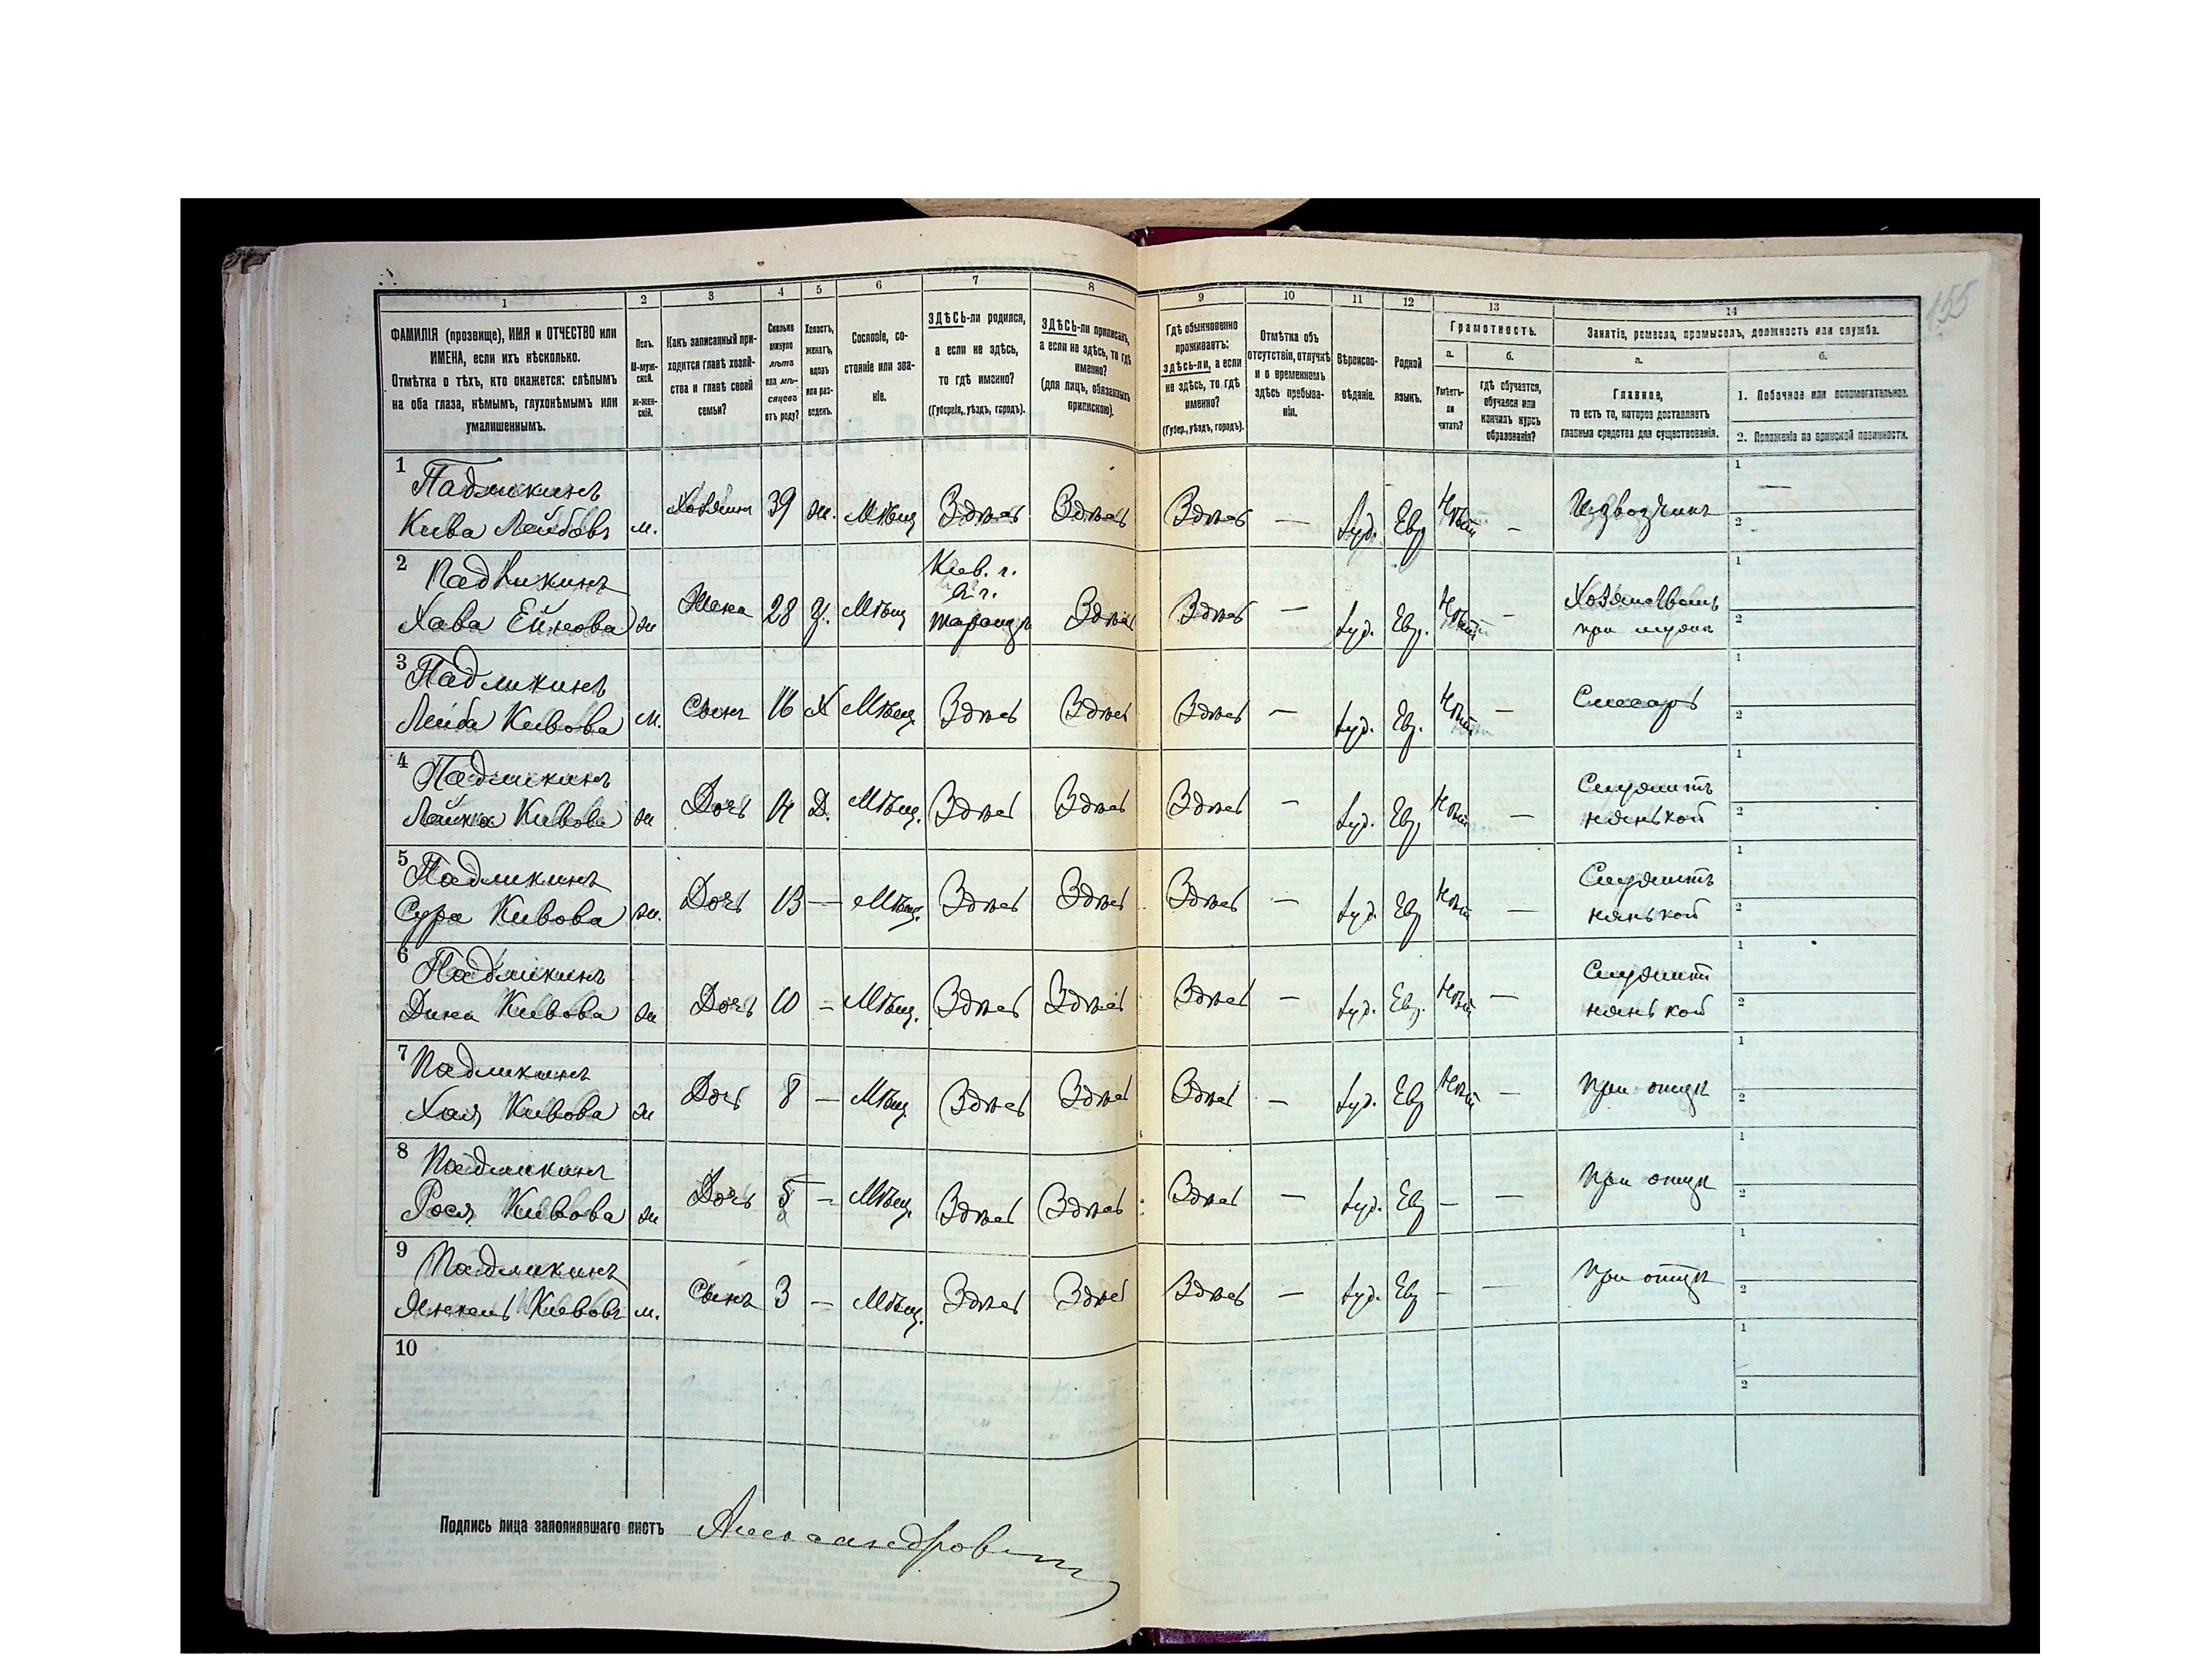 155
1
2
3
4
5
6
7
8
9
10
11
12
13
14
ФАМИЛІЯ (прозвище), ИМЯ и ОТЧЕСТВО или
ИМЕНА, если ихъ нѣсколько.
Отмѣтка о тѣхъ, кто окажется: слѣпымъ
на оба глаза, нѣмымъ, глухонѣмымъ или
умалишеннымъ.
Полъ.
М-муж-
ской.
Ж-жен-
скій.
Какъ записанный при-
ходится главѣ хозяй-
ства и главѣ своей
семьи?
Сколько
минуло
лѣтъ
или мѣ-
сяцевъ
отъ роду?
Холостъ,
женатъ,
вдовъ
или раз-
веденъ.
Сословіе, со-
стояніе или зва-
ніе.
ЗДѢСЬ-ли родился,
а если не здѣсь,
то гдѣ именно?
(Губернія, уѣздъ, городъ).
ЗДѢСЬ-ли приписанъ,
а если не здѣсь, то гдѣ
именно?
(для лицъ, обязанныхъ
припискою).
Гдѣ обыкновенно
проживаетъ:
здѣсь-ли, а если
не здѣсь, то гдѣ
именно?
(Губер., уѣздъ, городъ).
Отмѣтка объ
отсутствіи, отлучкѣ
и о временномъ
здѣсь пребыва-
ніи.
Вѣроиспо-
вѣданіе.
Родной
языкъ.
Грамотность.
а.
Умѣетъ-
ли
читать?
б.
гдѣ обучается,
обучался или
кончилъ курсъ
образованія?
Занятіе, ремесло, промыселъ, должность или служба.
а.
Главное,
то есть то, которое доставляетъ
главныя средства для существованія.
б.
1. Побочное или вспомогательное.
2. Положеніе по воинской повинности.
1
Падликинъ
Кива Лейбовъ м. Хозяинъ 39 ж. Мѣщ Здѣсь Здѣсь Здѣсь — Іуд. Евр Нѣтъ — Извозчикъ
1 —
2
2
Падликинъ
Хава Ейнова ж Жена 28 З. Мѣщ
Кіев. г.
Здѣсь Здѣсь — Іуд. Евр. Нѣтъ —
Хозяйка
при мужѣ
1
2
3
Падликинъ
Лейба Кивова м. Сынъ 16 Х Мѣщ Здѣсь Здѣсь Здѣсь — Іуд. Евр. Нѣтъ — Слесарь
1
2
4
Падликинъ
Кивова ж Дочь 14 Д. Мѣщ. Здѣсь Здѣсь Здѣсь — Іуд. Евр Нѣтъ —
Служитъ
нянькой
1
2
5
Падликинъ
Сура Кивова ж. Дочь 13 — Мѣщ. Здѣсь Здѣсь Здѣсь — Іуд. Евр Нѣтъ —
Служитъ
нянькой
1
2
6
Падликинъ
Дина Кивова ж Дочь 10 — Мѣщ. Здѣсь Здѣсь Здѣсь — Іуд. Евр. Нѣтъ —
Служитъ
нянькой
1
2
7
Падликинъ
Хая Кивова ж Дочь 8 — Мѣщ Здѣсь Здѣсь Здѣсь — Іуд. Евр Нѣтъ — при отцѣ
1
2
8
Падликинъ
Рося Кивова ж Дочь 5 — Мѣщ. Здѣсь Здѣсь Здѣсь — Іуд. Евр — — при отцѣ
1
2
9
Падликинъ
Янкель Кивовъ м. Сынъ 3 — Мѣщ. Здѣсь Здѣсь Здѣсь — Іуд. Евр — — при отцѣ
1
2
10
1
2
Подпись лица заполнявшаго листъ Александрович